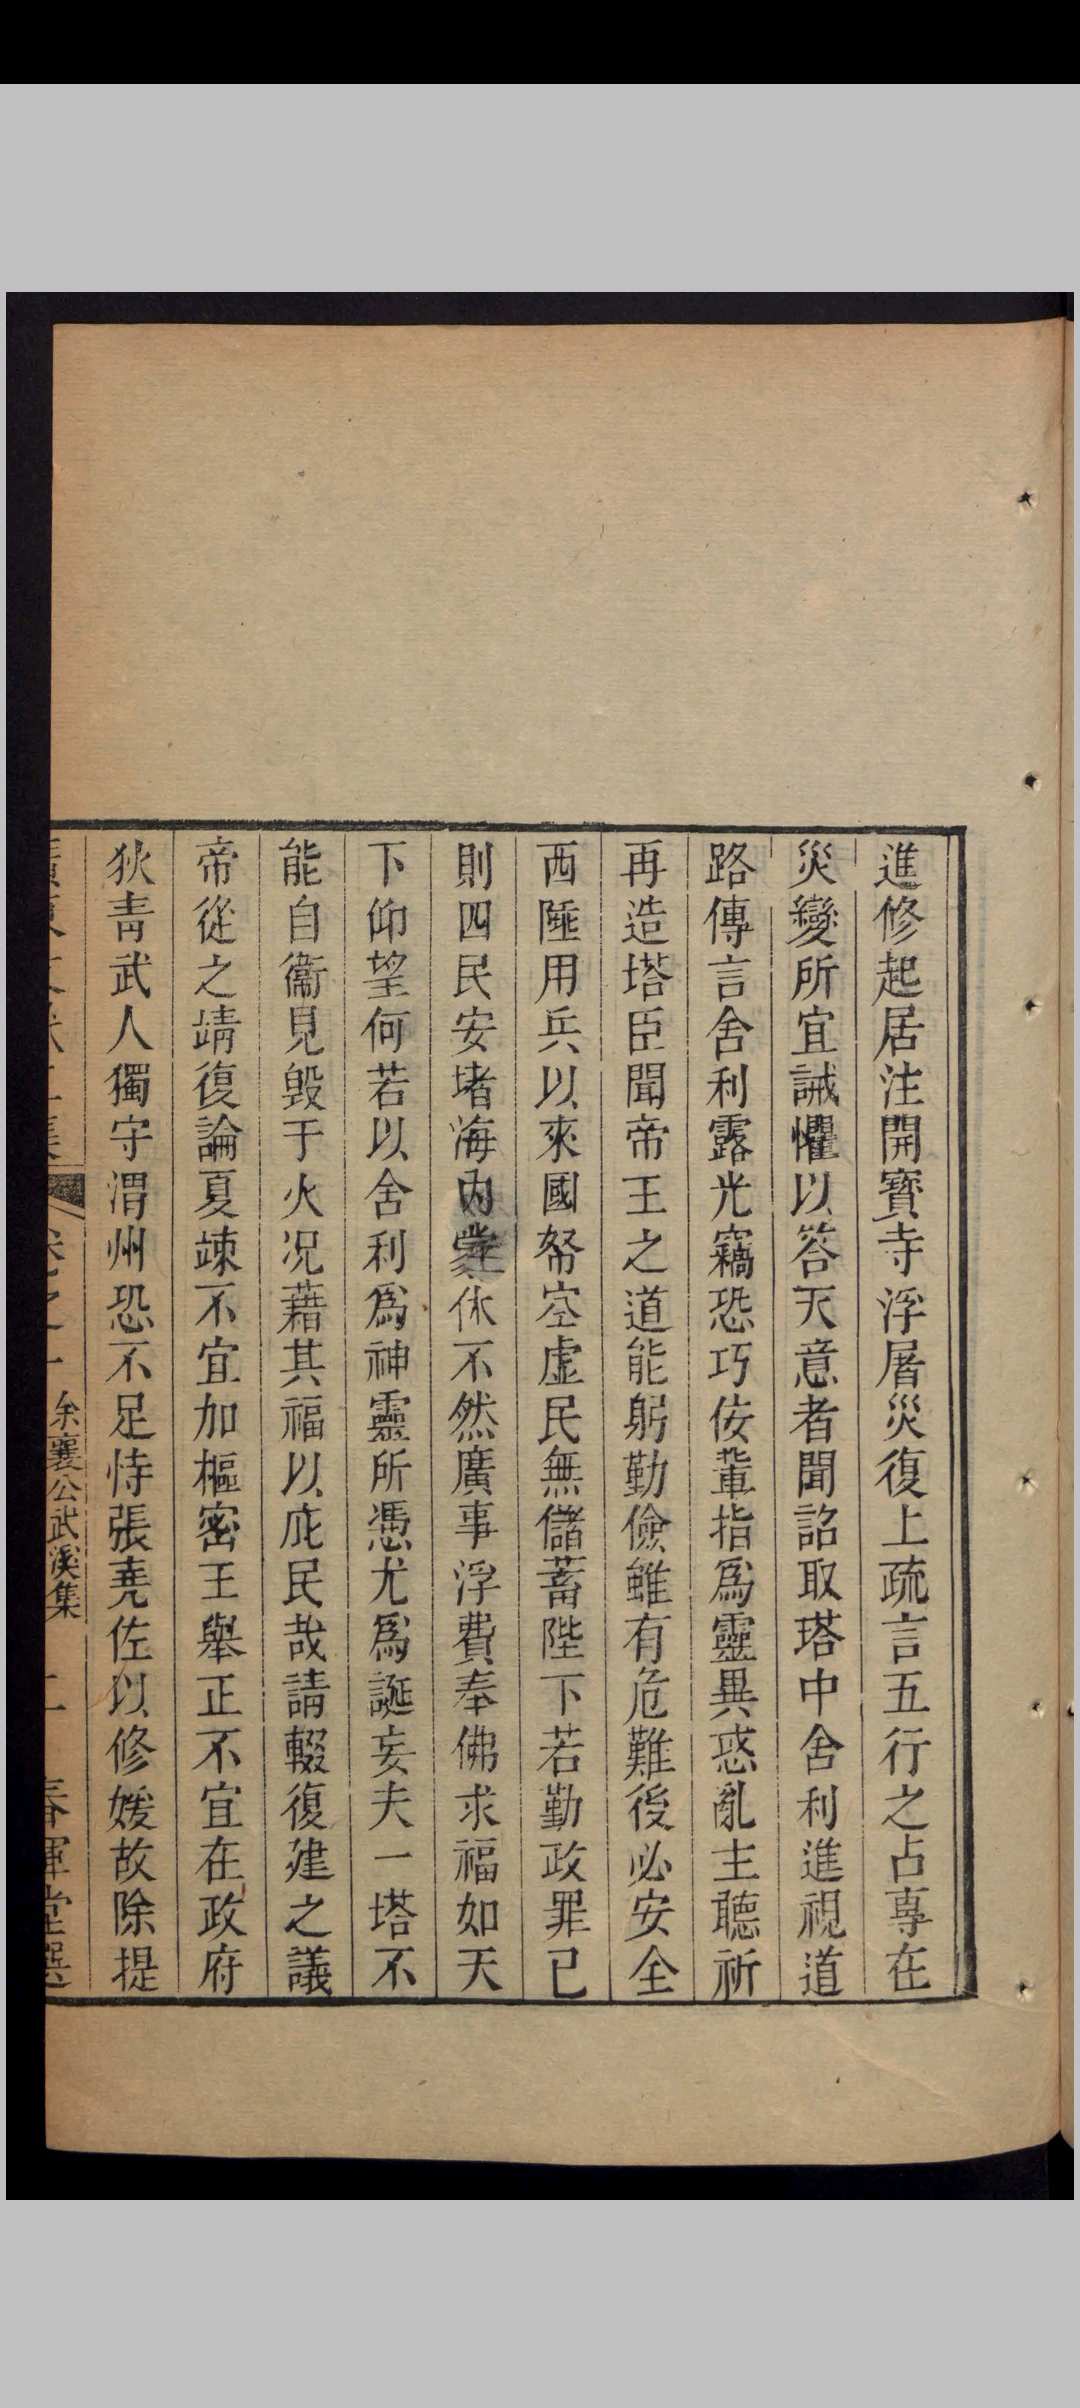 進修起居注開寶寺浮屠災復上疏言五行之占專在
災變所宜誡懼以答天意者聞詔取塔中舍利進視道
路傳言舍利露光竊恐巧佞輩指爲靈異惑亂主聽祈
再造塔臣聞帝王之道能躬勤儉雖有危難後必安全
西陲用兵以來國帑空虛民無儲蓄陛下若勤政罪已
則四民安堵海內蒙休不然廣事浮費奉佛求福如天
下仰望何若以舍利爲神靈所憑尤爲誕妄夫一塔不
能自衞見毀于火况藉其福以庇民哉請輟復建之議
帝從之靖復論夏竦不宜加樞密王舉正不宜在政府
狄靑武人獨守渭州恐不足恃張堯佐以修媛故除提
余襄公武溪集 二 春暉堂選